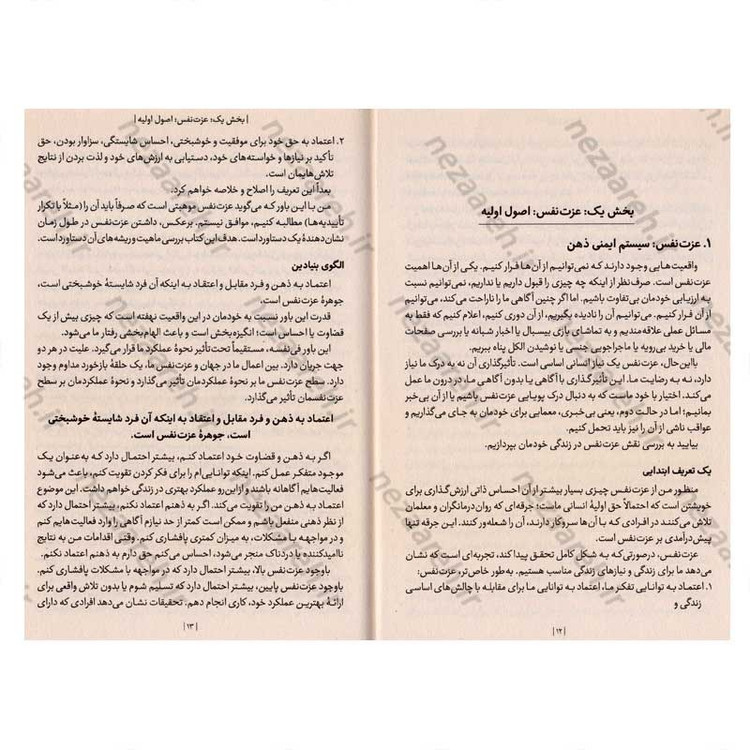 بخش یک: عزت‌نفس: اصول اولیه
۱. عزت‌نفس: سیستم ایمنی ذهن
واقعیت‌هایی وجود دارند که نمی‌توانیم از آن‌ها فرار کنیم. یکی از آن‌ها اهمیت
عزت‌نفس است. صرف‌نظر از اینکه چه چیزی را قبول داریم یا نداریم، نمی‌توانیم نسبت
به ارزیابی خودمان بی‌تفاوت باشیم. اما اگر چنین آگاهی ما را ناراحت می‌کند، می‌توانیم
از آن فرار کنیم. می‌توانیم آن را نادیده بگیریم، از آن دوری کنیم، اعلام کنیم که فقط به
مسائل عملی علاقه‌مندیم و به تماشای بازی بیسبال یا اخبار شبانه یا بررسی صفحات
مالی یا خرید بی‌رویه یا ماجراجویی جنسی یا نوشیدن الکل پناه ببریم.
بااین‌حال، عزت‌نفس یک نیاز انسانی اساسی است. تأثیرگذاری آن نه به درک ما نیاز
دارد، نه به رضایت ما. این تأثیرگذاری با آگاهی یا بدون آگاهی ما، در درون ما عمل
می‌کند. اختیار با خود ماست که به دنبال درک پویایی عزت‌نفس باشیم یا از آن بی‌خبر
بمانیم؛ اما در حالت دوم، یعنی بی‌خبری، معمایی برای خودمان به جای می‌گذاریم و
عواقب ناشی از آن را نیز باید تحمل کنیم.
بیایید به بررسی نقش عزت‌نفس در زندگی خودمان بپردازیم.
یک تعریف ابتدایی
منظور من از عزت‌نفس چیزی بسیار بیشتر از آن احساس ذاتی ارزش‌گذاری برای
خویشتن است که احتمالاً حق اولیهٔ انسانی ماست؛ جرقه‌ای که روان‌درمانگران و معلمان
تلاش می‌کنند در افرادی که با آن‌ها سروکار دارند، آن را شعله‌ور کنند. این جرقه تنها
پیش‌درآمدی بر عزت‌نفس است.
عزت‌نفس، درصورتی‌که به شکل کامل تحقق پیدا کند، تجربه‌ای است که نشان
می‌دهد ما برای زندگی و نیازهای زندگی مناسب هستیم. به‌طور خاص‌تر، عزت‌نفس:
۱. اعتماد به توانایی تفکر ما، اعتماد به توانایی ما برای مقابله با چالش‌های اساسی
زندگی و
| ۱۲ |
| بخش یک: عزت‌نفس: اصول اولیه |
۲. اعتماد به حق خود برای موفقیت و خوشبختی، احساس شایستگی، سزاوار بودن، حق
تأکید بر نیازها و خواسته‌های خود، دستیابی به ارزش‌های خود و لذت بردن از نتایج
تلاش‌هایمان است.
بعداً این تعریف را اصلاح و خلاصه خواهم کرد.
من با این باور که می‌گوید عزت‌نفس موهبتی است که صرفاً باید آن را (مثلاً با تکرار
تأییدیه‌ها) مطالبه کنیم، موافق نیستم. برعکس، داشتن عزت‌نفس در طول زمان
نشان‌دهندهٔ یک دستاورد است. هدف این کتاب بررسی ماهیت و ریشه‌های آن دستاورد است.
الگوی بنیادین
اعتماد به ذهن و فرد مقابل و اعتقاد به اینکه آن فرد شایستهٔ خوشبختی است،
جوهرهٔ عزت‌نفس است.
قدرت این باور نسبت به خودمان در این واقعیت نهفته است که چیزی بیش از یک
قضاوت یا احساس است؛ انگیزه‌بخش است و باعث الهام‌بخشی رفتار ما می‌شود.
این باور فی‌نفسه، مستقیماً تحت‌تأثیر نحوهٔ عملکرد ما قرار می‌گیرد. علیت در هر دو
جهت جریان دارد. بین اعمال ما در جهان و عزت‌نفس ما، یک حلقهٔ بازخورد مداوم وجود
دارد. سطح عزت‌نفس ما بر نحوهٔ عملکردمان تأثیر می‌گذارد و نحوهٔ عملکردمان بر سطح
عزت‌نفسمان تأثیر می‌گذارد.
اعتماد به ذهن و فرد مقابل و اعتقاد به اینکه آن فرد شایستهٔ خوشبختی
است، جوهرهٔ عزت‌نفس است.
اگر به ذهن و قضاوت خود اعتماد کنم، بیشتر احتمال دارد که به‌عنوان یک
موجود متفکر عمل کنم. اینکه توانایی‌ام را برای فکر کردن تقویت کنم، باعث می‌شود
فعالیت‌هایم آگاهانه باشند و ازاین‌رو عملکرد بهتری در زندگی خواهم داشت. این موضوع
اعتماد به ذهن من را تقویت می‌کند. اگر به ذهنم اعتماد نکنم، بیشتر احتمال دارد که
از نظر ذهنی منفعل باشم و ممکن است کمتر از حد نیازم آگاهی را وارد فعالیت‌هایم کنم
و در مواجهه با مشکلات، به میزان کمتری پافشاری کنم. وقتی اقدامات من به نتایج
ناامیدکننده یا دردناک منجر می‌شود، احساس می‌کنم حق دارم به ذهنم اعتماد نکنم.
باوجود عزت‌نفس بالا، بیشتر احتمال دارد که در مواجهه با مشکلات پافشاری کنم.
باوجود عزت‌نفس پایین، بیشتر احتمال دارد که تسلیم شوم یا بدون تلاش واقعی برای
ارائهٔ بهترین عملکرد خود، کاری انجام دهم. تحقیقات نشان می‌دهد افرادی که دارای
| ۱۳ |
nezaareh.ir